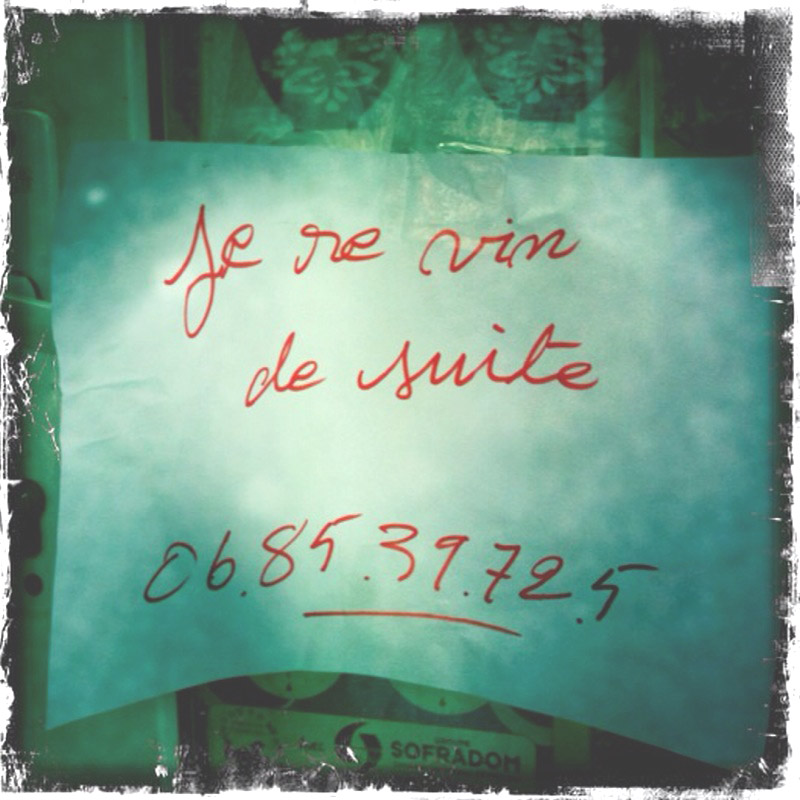 Je re vin
de suite
06.85.39.72.5
SOFRADOM